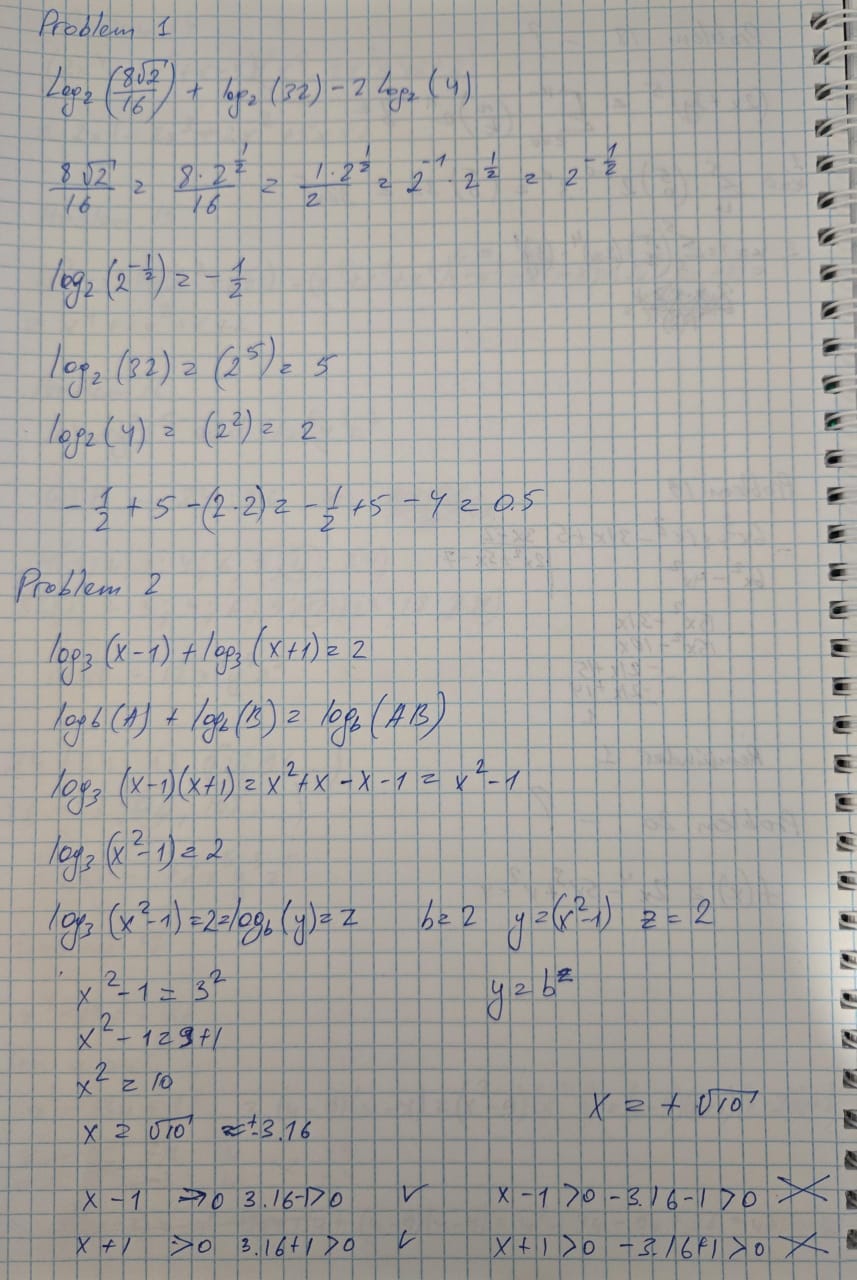 Problem 1
log₂(8√2/16) + log₂(32) - 2 log₂(4)
8√2/16 = 8·2^(1/2)/16 = 1·2^(1/2)/2 = 2^(-1)·2^(1/2) = 2^(-1/2)
log₂(2^(-1/2)) = -1/2
log₂(32) = (2⁵) = 5
log₂(4) = (2²) = 2
-1/2 + 5 - (2·2) = -1/2 + 5 - 4 = 0.5
Problem 2
log₃(x-1) + log₃(x+1) = 2
log b(A) + log_b(B) = log_b(AB)
log₃ (x-1)(x+1) = x²+x-x-1 = x²-1
log₃(x²-1) = 2
log₃(x²-1) = 2 = log_b(y) = z b = 2 y = (x²-1) z = 2
x²-1 = 3² y = b^z
x²-1 = 9+1
x² = 10
x = √10 = ±3.16 x = + √10
x-1 >0 3.16-1>0 ✓ x-1>0 -3.16-1>0 ✗
x+1 >0 3.16+1>0 ✓ x+1>0 -3.16+1>0 ✗